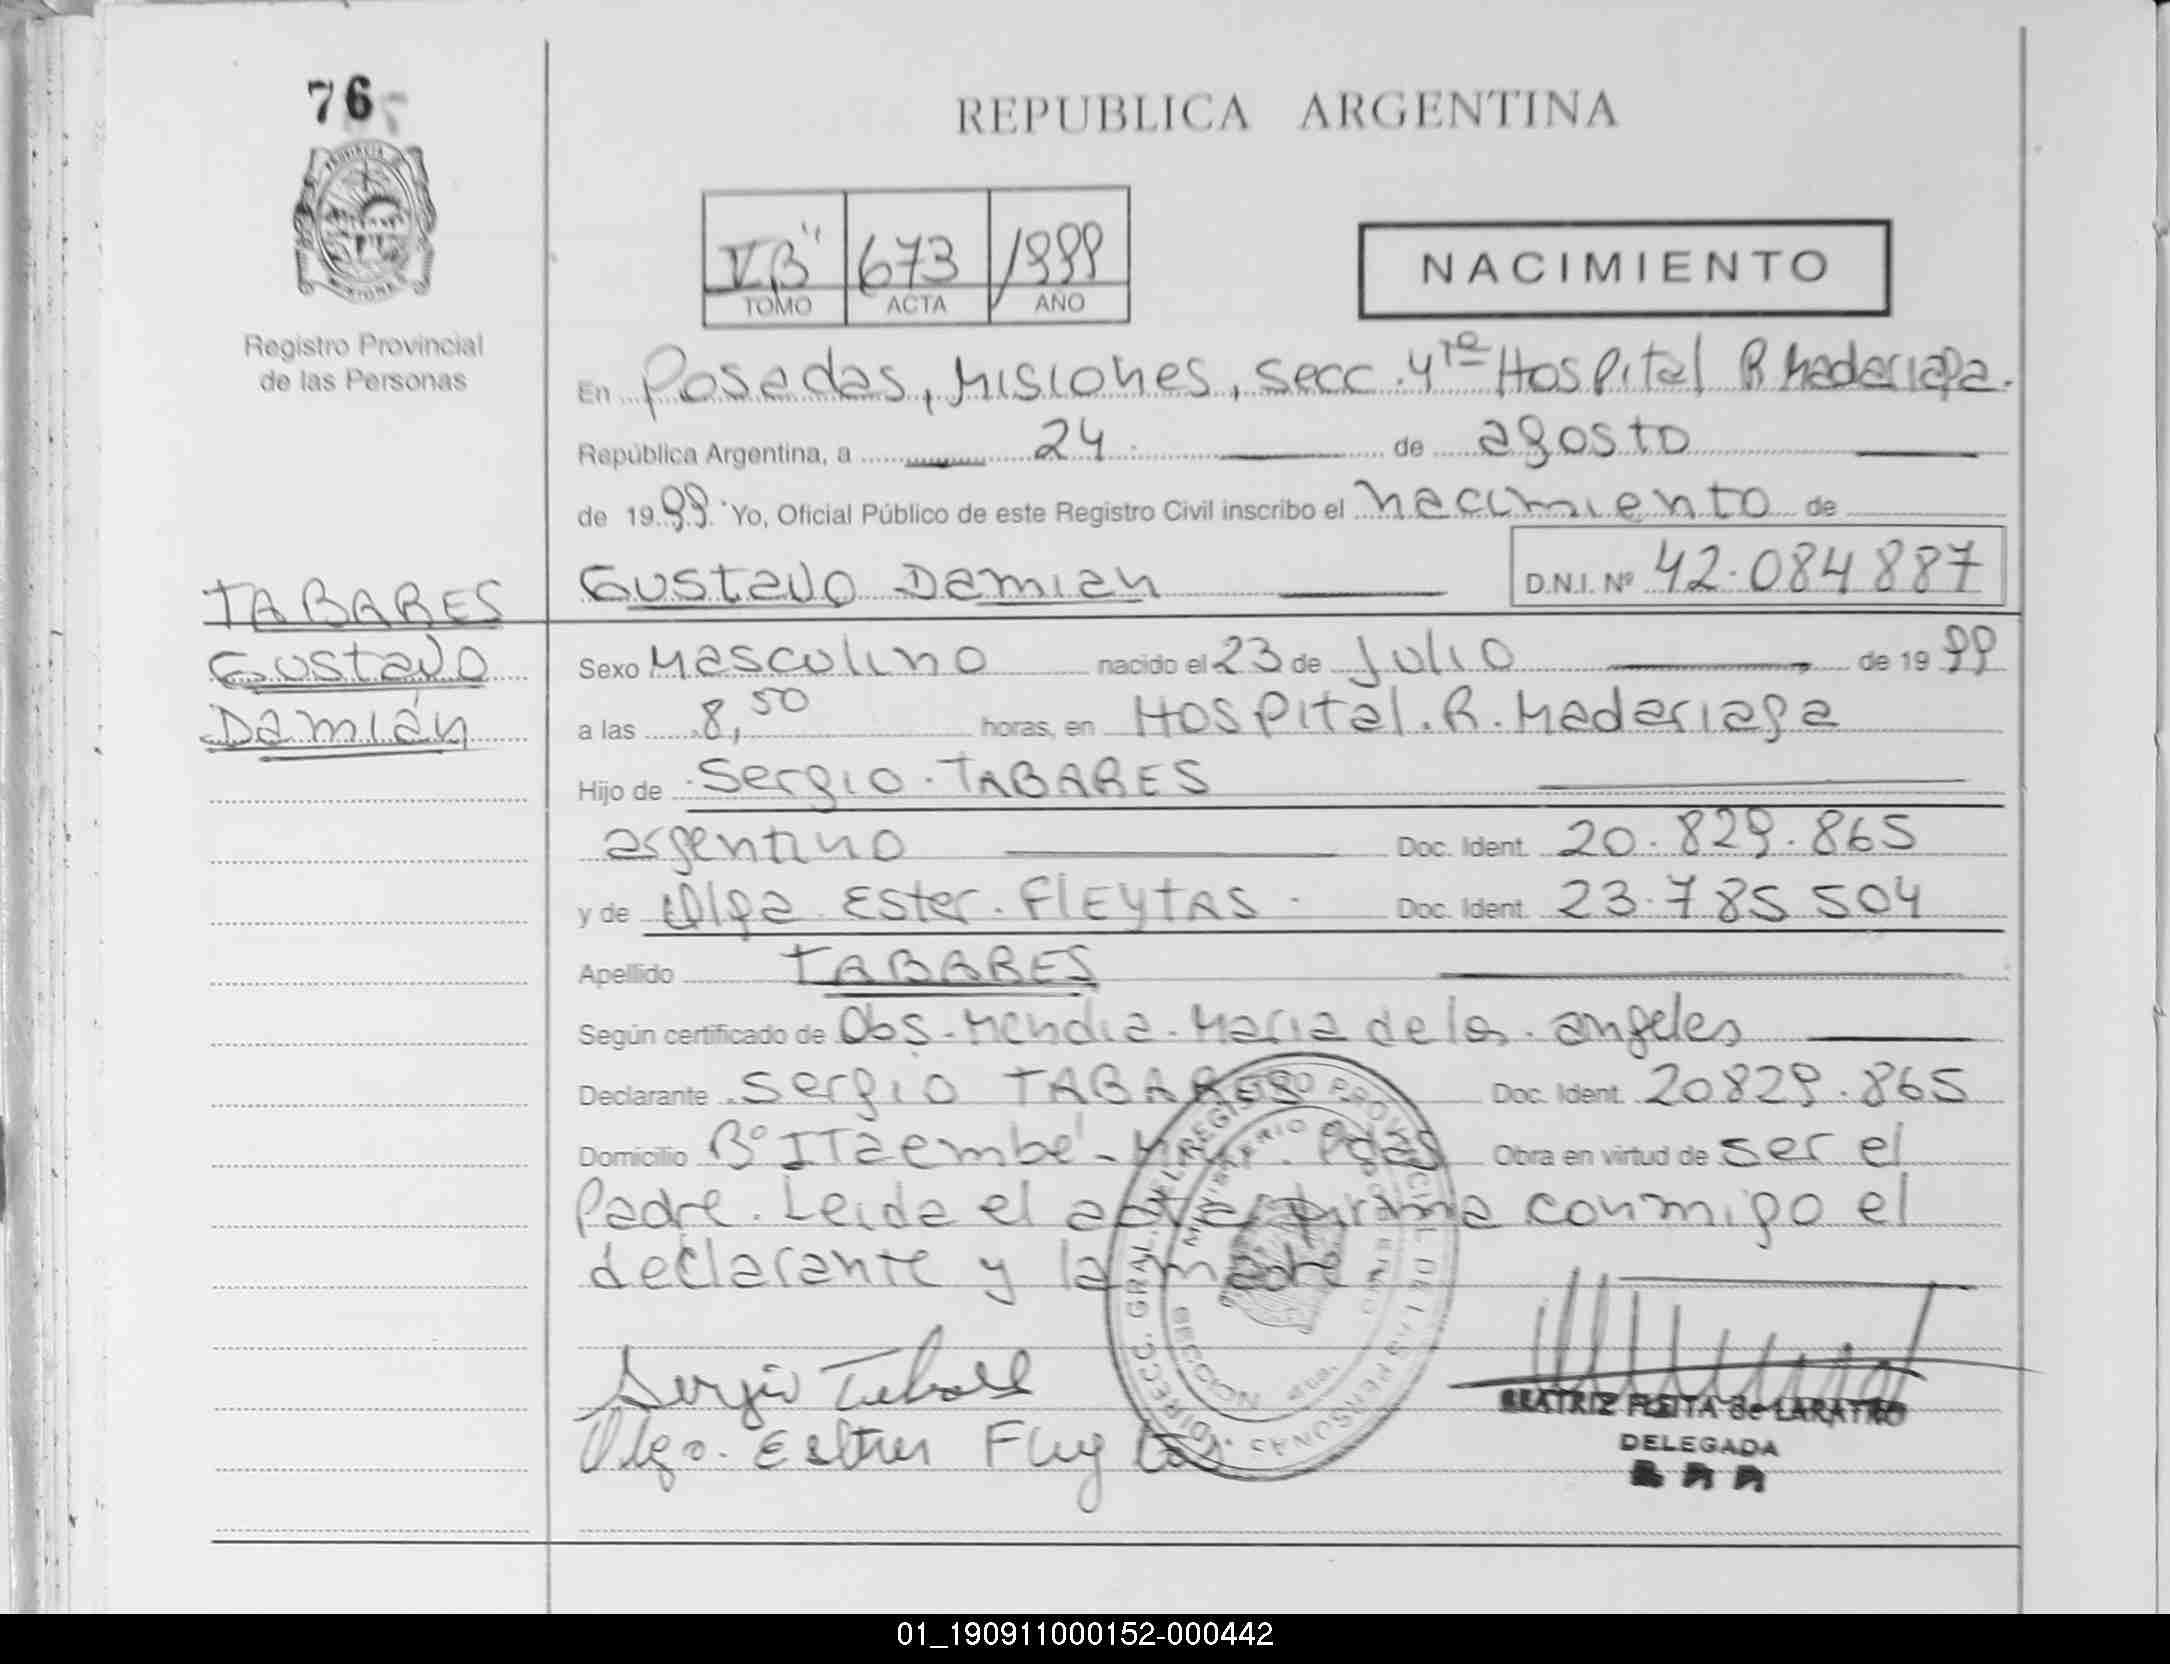 76
REPUBLICA ARGENTINA
VB" 673 1999
TOMO ACTA AÑO
NACIMIENTO
Registro Provincial
de las Personas
En Posadas, Misiones, secc. 4ta Hospital R Madariaga.
República Argentina, a 24 de agosto
de 1999 Yo, Oficial Público de este Registro Civil inscribo el nacimiento de
Gustavo Damian D.N.I. Nº 42.084887
TABARES
Gustavo
Damián
Sexo Masculino nacido el 23 de Julio de 1999
a las 8,50 horas, en Hospital. R. Madariaga
Hijo de Sergio. TABARES
argentino Doc. Ident. 20.829.865
y de Olga Ester. FlEYTAS. Doc. Ident. 23.785504
Apellido TABARES
Según certificado de Obs. Mendia. Maria de los. angeles
Declarante Sergio TABARES Doc. Ident. 20829.865
Domicilio B° ITaembé - Pdas Obra en virtud de ser el
Padre. Leida el acta firma conmigo el
declarante y la madre
Sergio Tabares
Olga. Esther Fleytas
DIRECC. GRAL. DEL REGISTRO PROVINCIAL DE LAS PERSONAS
MINISTERIO DE GOBIERNO
BEATRIZ FLEITA de LARATRO
DELEGADA
01_190911000152-000442